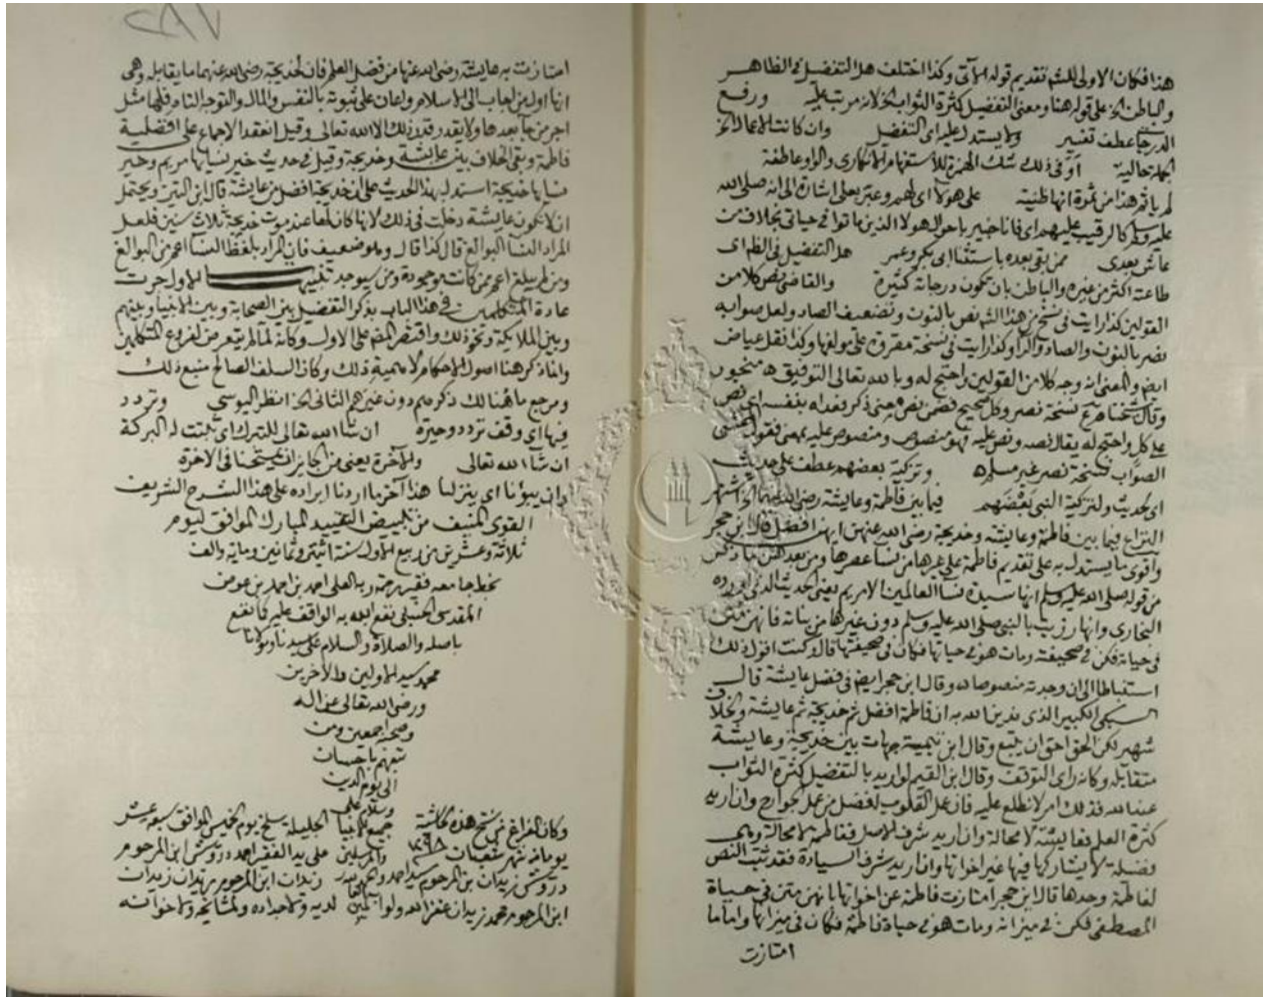 هذا فكان الاولى للشم تقديم قوله الآتى وكذا اختلف هل التفضيل فى الظاهر
والباطن الخ على قوله هنا ومعنى التفضيل كثرة الثواب الخ لانه مرتب عليه ورفع
الدرجات عطف تفسير ولا يستدل عليه اى التفضل وان كانتا الاعمال الخ
الجملة حالية أوَ فى ذلك شك الهمزة للاستفهام الانكارى والواو عاطفة
لم ياثم هذا من ثمرة انها ظنية على هولاء اى لهم وعبر بعلى اشارة الى انه صلى الله
عليه وسلم كالرقيب عليهم اى فانا خبير باحوال هولا الذين ماتوا فى حياتى بخلاف من
عاش بعدى ممن بقى بعده باستثنا ابى بكر وعمر هل التفضيل فى الظ اى
طاعته اكثر من غيره والباطن بان تكون درجاته كثيرة والقاضى نص كلا من
القولين كذا رايت فى نسخ من هذا الشم نص بالنون وتضعيف الصاد ولعل صوابه
نصر بالنون والصاد والرا وكذا رايت فى نسخة مقروة على مولفها وكذا نقل عياض
ايض والمعنى انه وجه كلا من القولين واحتج له وبالله تعالى التوفيق ه منجور
وقال شيخنا نسخة نصر وكل صحيح فمعنى نصه يعنى ذكر بعد انه بنفسه اى نص
على كل واحتج له يقال نصه ونص عليه فهو منصوص ومنصوص عليه بمعنى فقول المحشى
الصواب نسخة نصر غير مسلم ه وتزكية بعضهم عطف على حديث
اى لحديث ولتزكية النبى بَعْضَهم فيما بين فاطمة وعايشة رضى الله عنهما الخ اشتهر
النزاع فيما بين فاطمة وعايشة وخديجة رضى الله عنهن ايهن افضل قال ابن حجر
واقوى ما يستدل به على تقديم فاطمة على غيرها من نسا عصرها ومن بعدهن ما ذكر
من قوله صلى الله عليه وسلم انها سيدة نسا العالمين الا مريم يعنى الحديث الذى اورده
البخارى وانها رزيت بالنبى صلى الله عليه وسلم دون غيرها من بناته فانهن متن
فى حياته فكن فى صحيفته ومات هو فى حياتها فكان فى صحيفتها قال وكنت اقول ذلك
استنباطا الى ان وجدته منصوصا ه وقال ابن حجر ايض فى فضل عايشة قال
السبكى الكبير الذى ندين الله به ان فاطمة افضل ثم خديجة ثم عايشة والخلاف
شهير لكن الحق احق ان يتبع وقال ابن تيمية جهات بين خديجة وعايشة
متقابلة وكانه راى التوقف وقال ابن القيم لو اريد بالتفضيل كثرة الثواب
عند الله فذلك امر لا نطلع عليه فان عمل القلوب افضل من عمل الجوارح وان اريد
كثرة العلم فعايشة لا محالة وان اريد شرف الاصل ففاطمة لا محالة وهى
فضيلة لا يشاركها فيها غير اخواتها وان اريد شرف السيادة فقد ثبت النص
لفاطمة وحدها قال ابن حجر امتازت فاطمة عن اخواتها بانهن متن فى حياة
المصطفى فكن فى ميزانه ومات هو فى حياة فاطمة فكان فى ميزانها واما ما
امتازت
٢٨٧
امتازت به عايشة رضى الله عنها من فضل العلم فان لخديجة رضى الله عنها ما يقابله وهى
انها اول من اجاب الى الاسلام واعان على ثبوته بالنفس والمال والتوجه التام فلها مثل
اجر من جا بعدها ولا يقدر قدر ذلك الا الله تعالى وقيل انعقد الاجماع على افضلية
فاطمة وبقى الخلاف بين عايشة وخديجة وقيل فى حديث خير نسايها مريم وخير
نسايها خديجة استدل بهذا الحديث على ان خديجة افضل من عايشة قال ابن التين ويحتمل
ان لا تكون عايشة دخلت فى ذلك لانها كان لها عند موت خديجة ثلاث سنين فلعل
المراد النسا البوالغ قال كذا قال وهو ضعيف فان المراد بلفظ النسا اعم من البوالغ
ومن لم يبلغ اعم ممن كانت موجودة ومن سيوجد تنبيه الاول جرت
عادة المتكلمين فى هذا الباب بذكر التفضيل بين الصحابة وبين الانبيا وبينهم
وبين الملايكة ونحو ذلك واقتصر المص على الاول وكانه لما لم يتعرض لفروع المتكلمين
وانما ذكر هنا اصول الاحكام لاهمية ذلك وكان السلف الصالح منبع ذلك
ومرجع ما هنالك ذكرهم دون غيرهم الثانى الخ انظر اليوسى وتردد
فيها اى وقف تردد وحيرة ان شا الله تعالى للتبرك اى ثبتت له البركة
ان شا الله تعالى والآخرة يعنى من الجايز ان يمتحنا فى الاخرة
وان يبوئنا اى ينزلنا هذا آخر ما اردنا ايراده على هذا الشرح الشريف
القوى المنيف من تبييض التقييد المبارك الموافق ليوم
ثلاثة وعشرين من ربيع الاول سنة اثنين وثمانين وماية والف
بخط جامعه فقير رحمة ربه العلى احمد بن احمد بن عوض
المقدسى الحنبلى نفع الله به الواقف عليه كما نفع
باصله والصلاة والسلام على سيدنا ومولانا
محمد سيد الاولين والآخرين
ورضى الله تعالى عن اله
وصحبه اجمعين ومن
تبعهم باحسان
الى يوم الدين
وسلام على
جميع الانبيا
والمرسلين
والحمد لله
رب العالمين
وكان الفراغ من نسخ هذه الحاشية الجليلة يوم الخميس الموافق سبعة عشر
يوما من شهر شعبان ١٢٩٨ على يد الفقير احمد درويش ابن المرحوم
درويش زيدان بن المرحوم سيد احمد زيدان ابن المرحوم زيدان زيدان
ابن المرحوم محمد زيدان غفر الله له ولوالديه ولاجداده ولمشايخه ولاخوانه